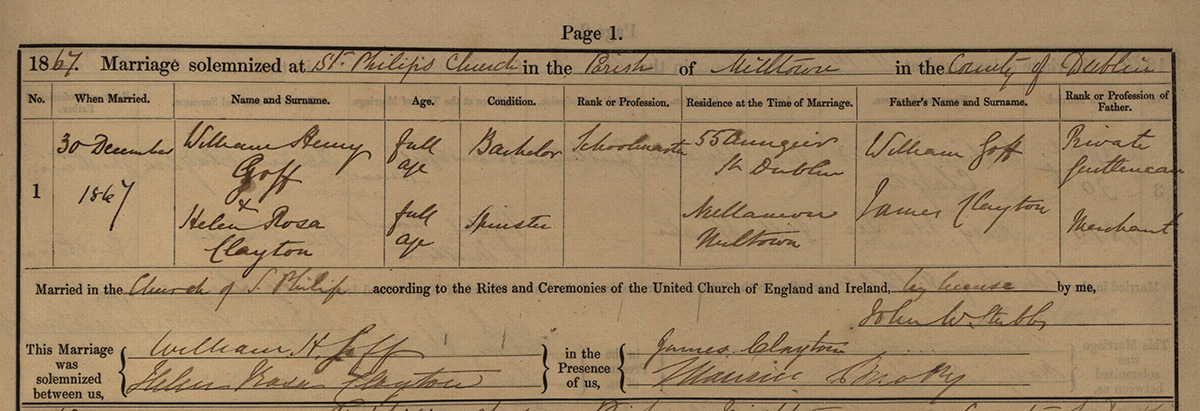 Page 1.
1867. Marriage solemnized at St. Philip's Church in the Parish of Milltown in the County of Dublin
No. When Married. Name and Surname. Age. Condition. Rank or Profession. Residence at the Time of Marriage. Father's Name and Surname. Rank or Profession of Father.
1 30 December 1867 William Henry Goff full age Bachelor 55 Aungier St Dublin William Goff Private Gentleman
& Helen Rosa Clayton full age Spinster Miltown James Clayton Merchant
Married in the Church of S. Philip according to the Rites and Ceremonies of the United Church of England and Ireland, by license by me,
John W. Stubbs
This Marriage was solemnized between us, William H. Goff in the Presence of us, James Clayton
Helen Rosa Clayton Maurice